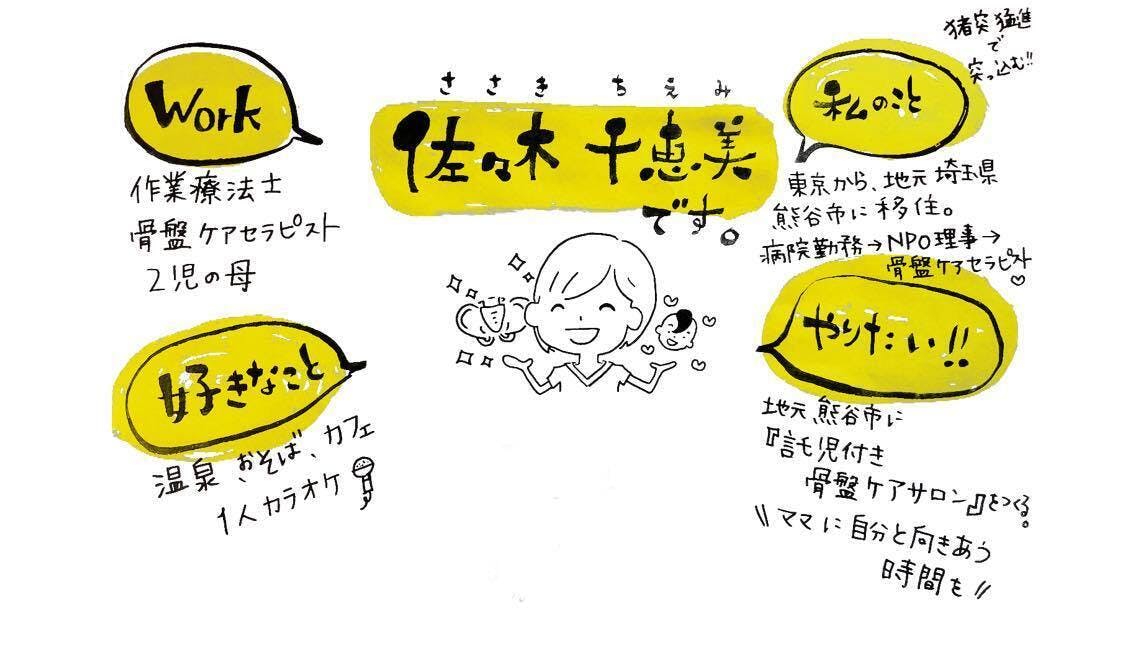 ささき ちえみ
佐々木 千恵美
です。
Work
作業療法士
骨盤ケアセラピスト
2児の母
好きなこと
温泉、おそば、カフェ
1人カラオケ
猪突猛進
で
突っ込む!!
私のこと
東京から、地元埼玉県
熊谷市に移住。
病院勤務→NPO理事→
骨盤ケアセラピスト
やりたい!!
地元熊谷市に
『託児付き
骨盤ケアサロン』をつくる。
\\ママに自分と向きあう
時間を//